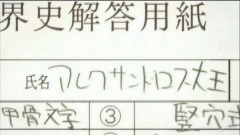 界史解答用紙
氏名 アレクサンドロス大王
甲骨文字 ③ 竪穴式